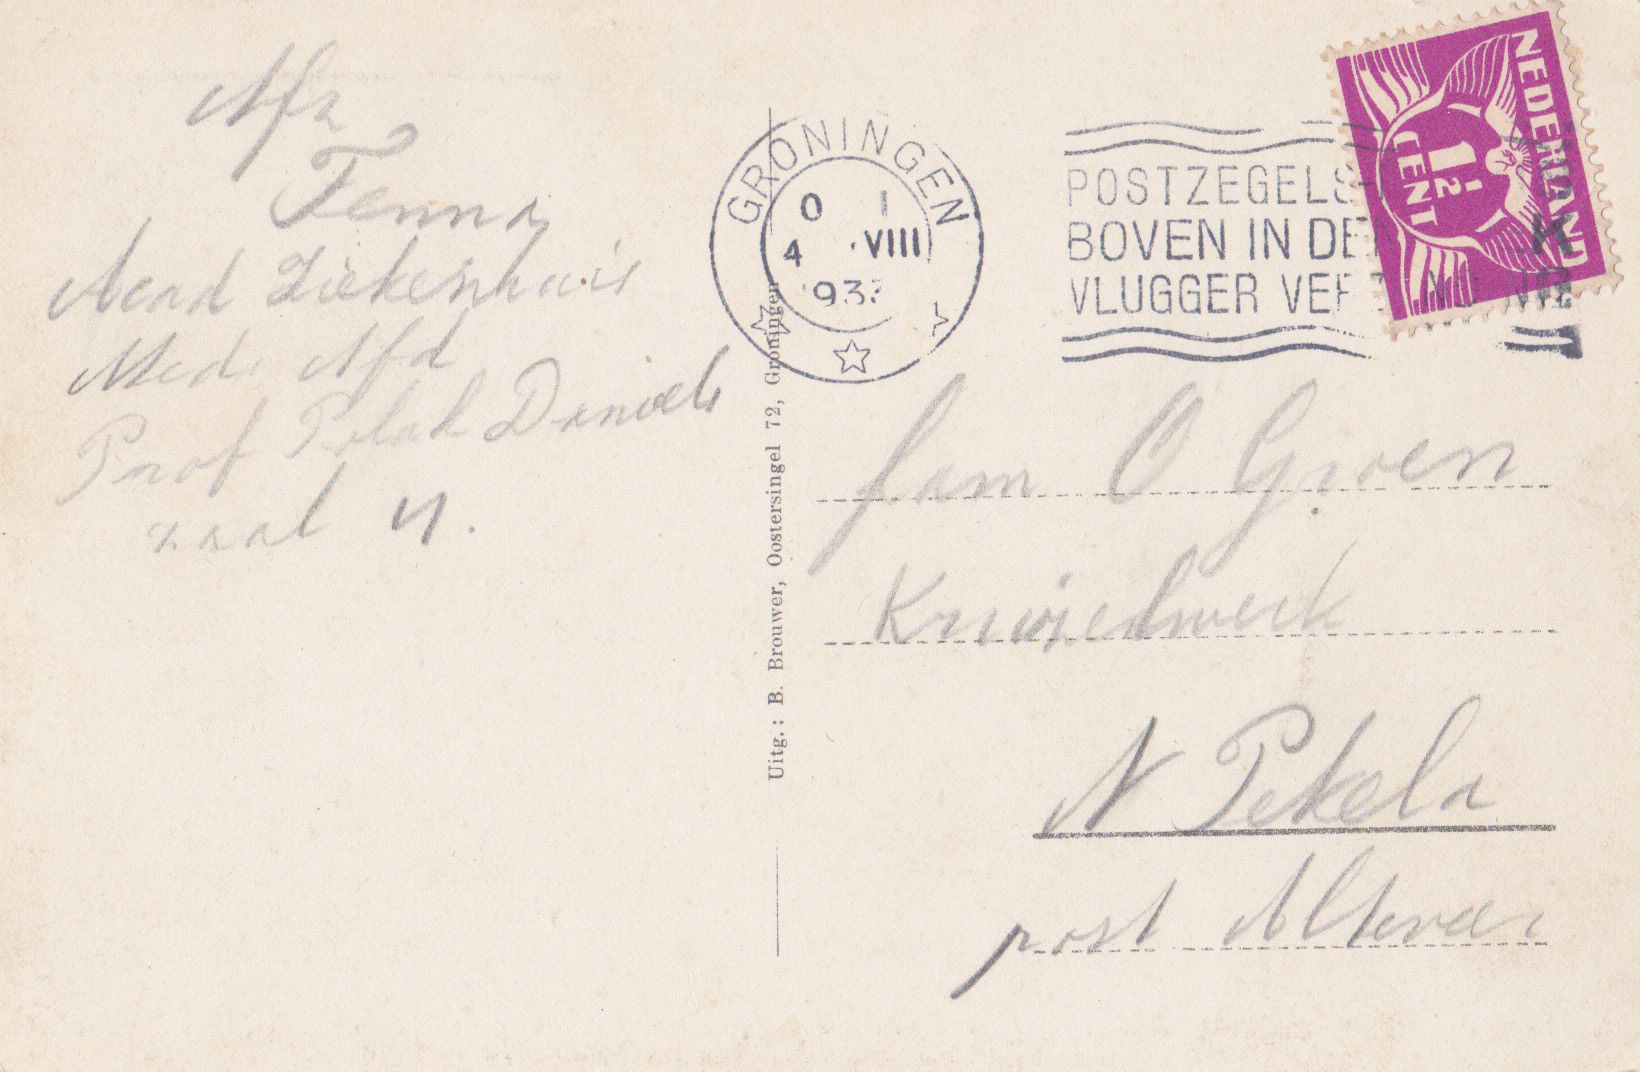 Afz
Fenna
Acad Ziekenhuis
Med. Afd
Prof Polak Daniels
zaal
GRONINGEN
0 1
4 VIII
193
POSTZEGELS
BOVEN IN DE K
VLUGGER VER
NEDERLAND
1½
CENT
Uitg.: B. Brouwer, Oostersingel 72, Groningen
fam O Groen
N Pekela
post Alteveer